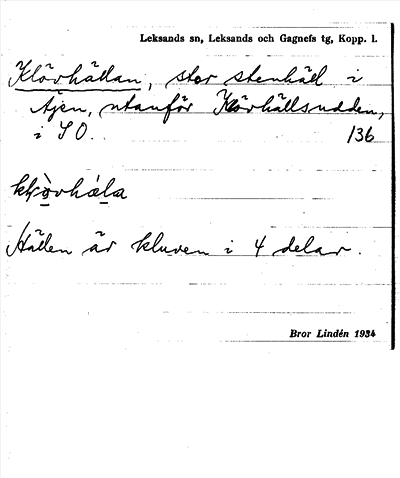 Leksands sn, Leksands och Gagnefs tg, Kopp. l.
Klövhällan, stor stenhäll i
sjön, utanför Klövhällsudden,
i SO. 136
Hällen är kluven i 4 delar.
Bror Lindén 1934